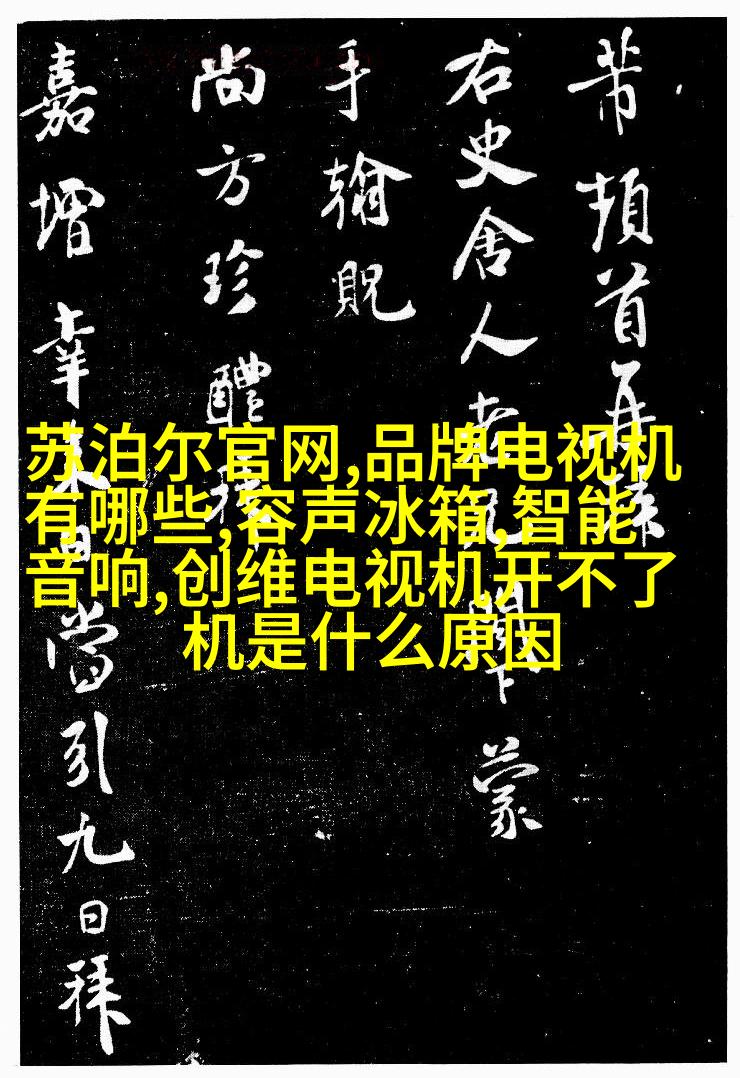 芾頓首再拜
右史舍人老兄閣下蒙
手翰貺
尚方珍醴
嘉增幸來日當引九日拜
苏泊尔官网,品牌电视机
有哪些,容声冰箱,智能
音响,创维电视机开不了
机是什么原因